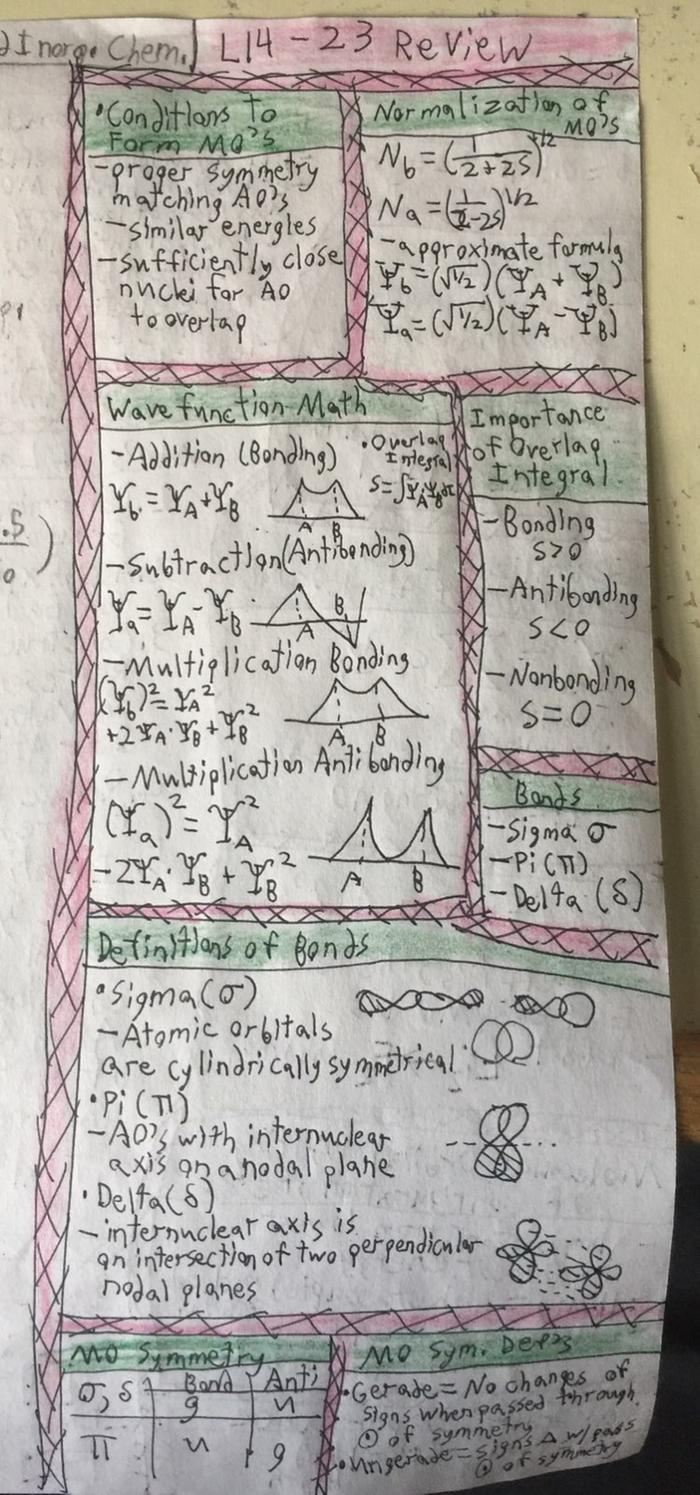 Inorg. Chem.
L14-23 Review
•Conditions to
Form MO's
-proper symmetry
matching AO's
-similar energies
-sufficiently close
nuclei for AO
to overlap
Normalization of
MO's
N_b = (1/(2+2S))^1/2
N_a = (1/(2-2S))^1/2
-approximate formula
Ψ_b = (√1/2)(Ψ_A + Ψ_B)
Ψ_a = (√1/2)(Ψ_A - Ψ_B)
Wavefunction Math
-Addition (Bonding)
Ψ_b = Ψ_A + Ψ_B
A B
•Overlap
Integral
S=∫Ψ_A Ψ_B dτ
-Subtraction (Antibonding)
Ψ_a = Ψ_A - Ψ_B
A B
-Multiplication Bonding
(Ψ_b)² = Ψ_A²
+2Ψ_A·Ψ_B + Ψ_B²
A B
-Multiplication Antibonding
(Ψ_a)² = Ψ_A²
-2Ψ_A·Ψ_B + Ψ_B²
A B
Importance
of Overlap
Integral
-Bonding
S>0
-Antibonding
S<0
-Nonbonding
S=0
Bonds
-Sigma σ
-Pi (π)
-Delta (δ)
Definitions of Bonds
•Sigma (σ)
-Atomic orbitals
are cylindrically symmetrical
•Pi (π)
-AO's with internuclear
axis on a nodal plane
•Delta (δ)
-internuclear axis is
on intersection of two perpendicular
nodal planes
MO Symmetry
Bond Anti
σ, δ g u
π u g
MO Sym. Def's
•Gerade = No changes of
signs when passed through
⊙ of symmetry
•Ungerade = signs Δ w/ pass
⊙ of symmetry